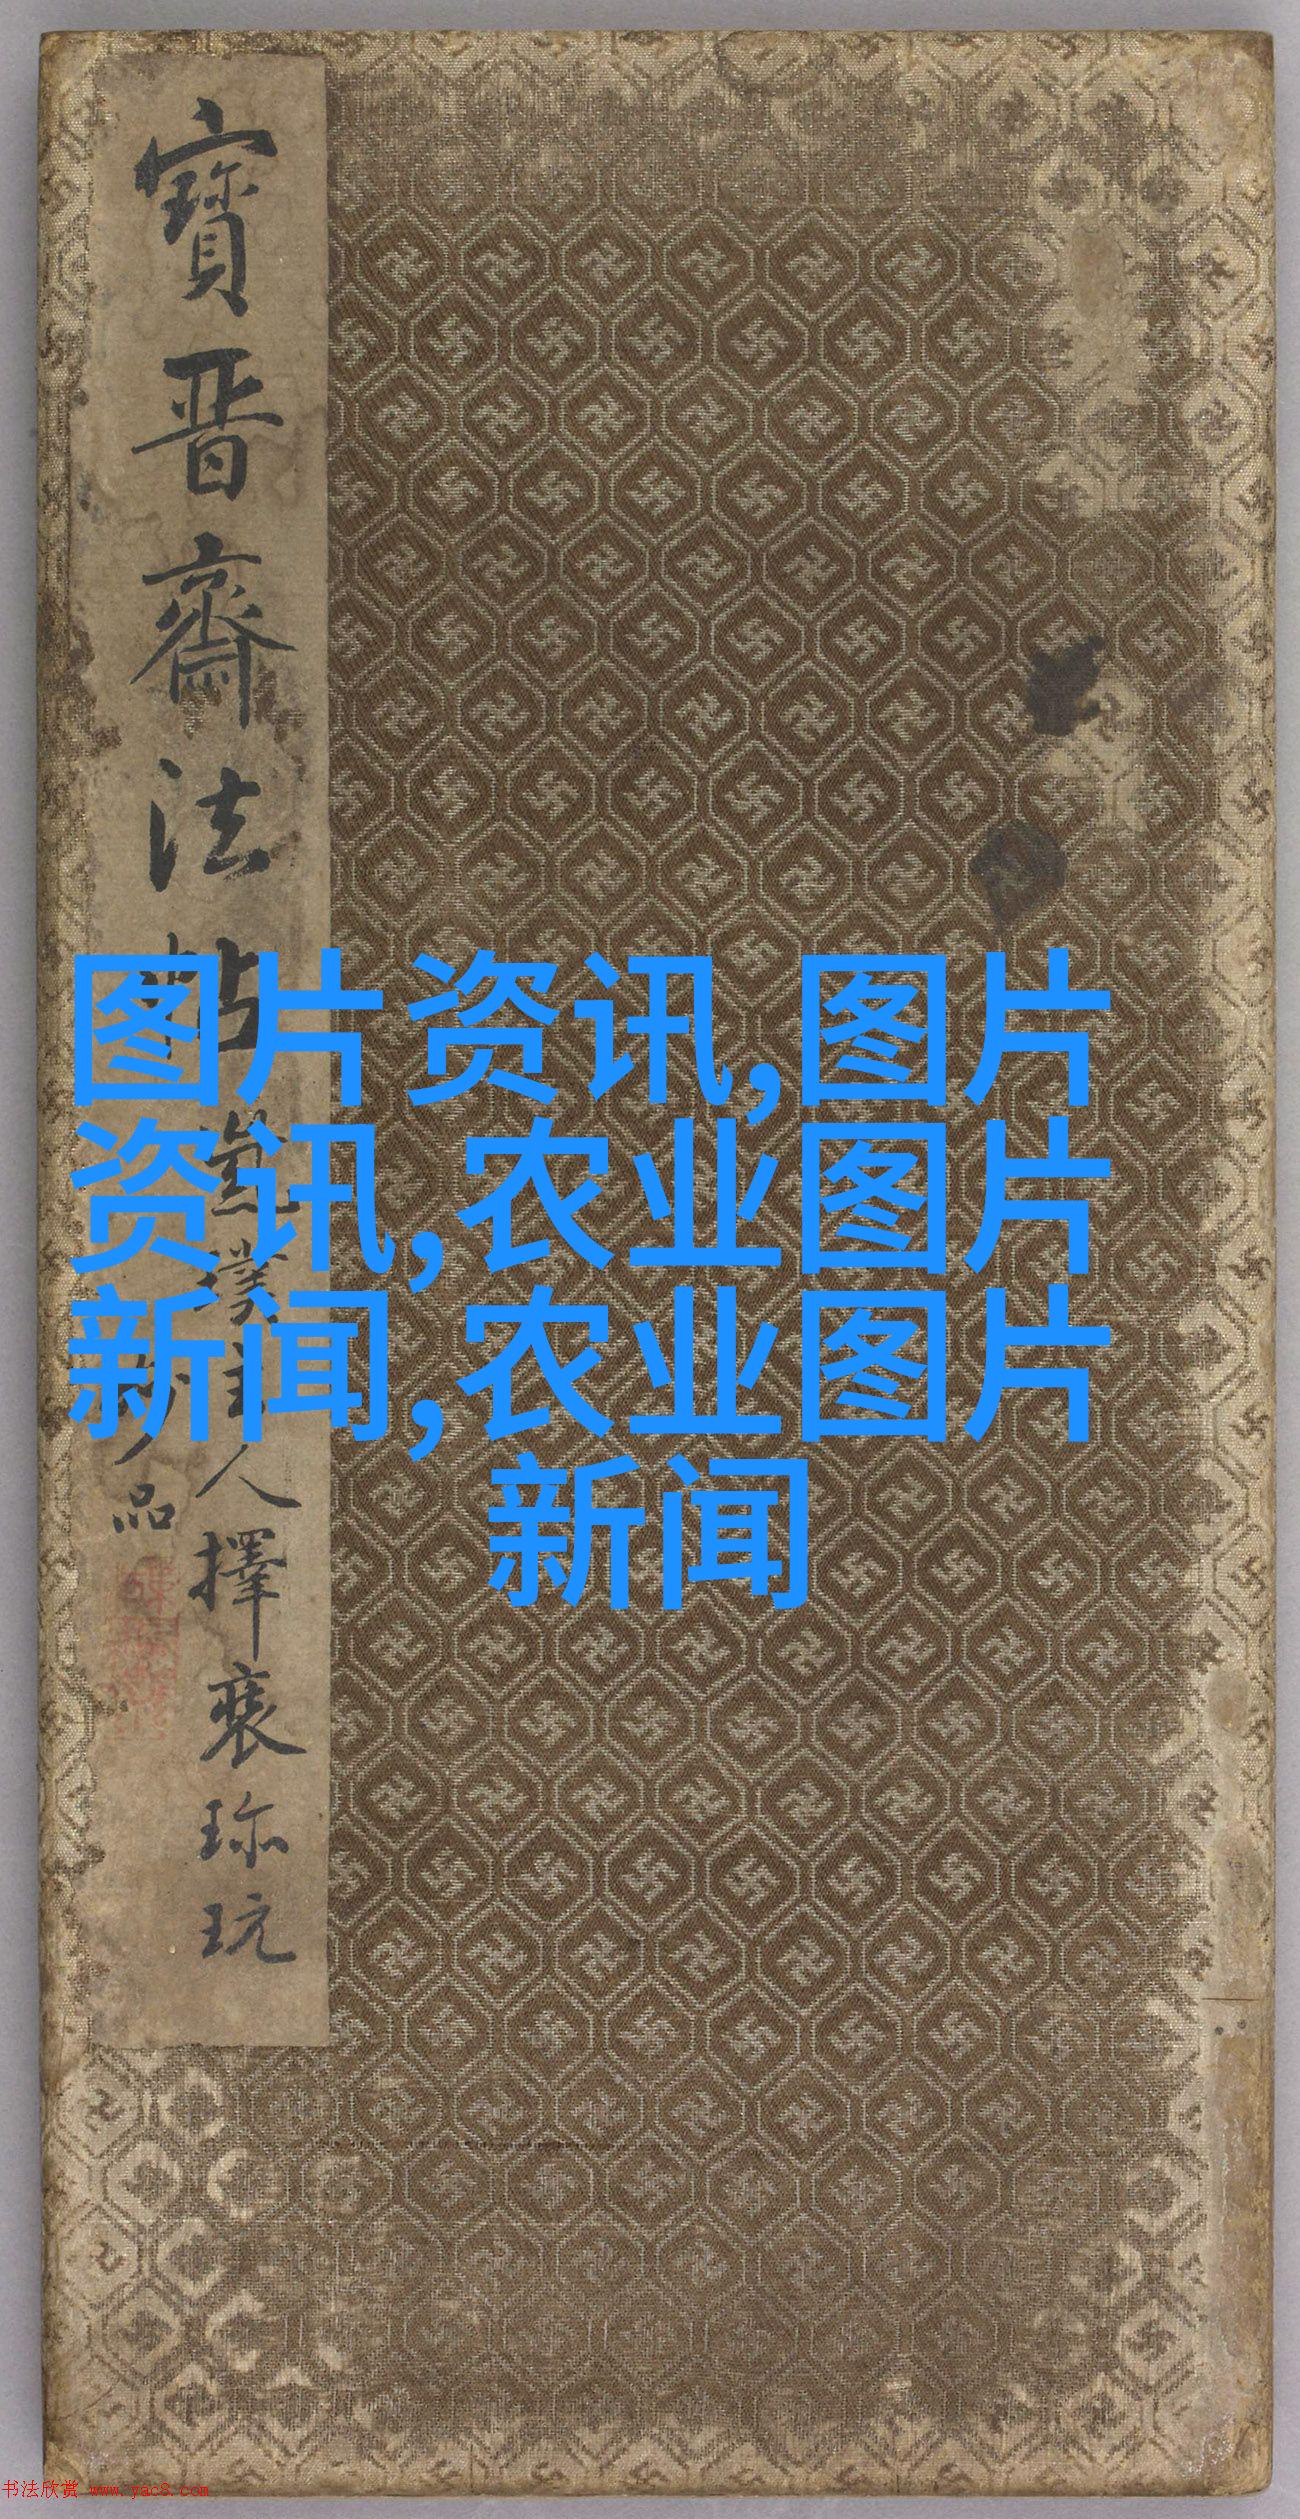 寶晋齋法帖
主人擇裘珎玩
品
图片资讯,图片
资讯,农业图片
新闻,农业图片
新闻
书法欣赏 www.yac8.com